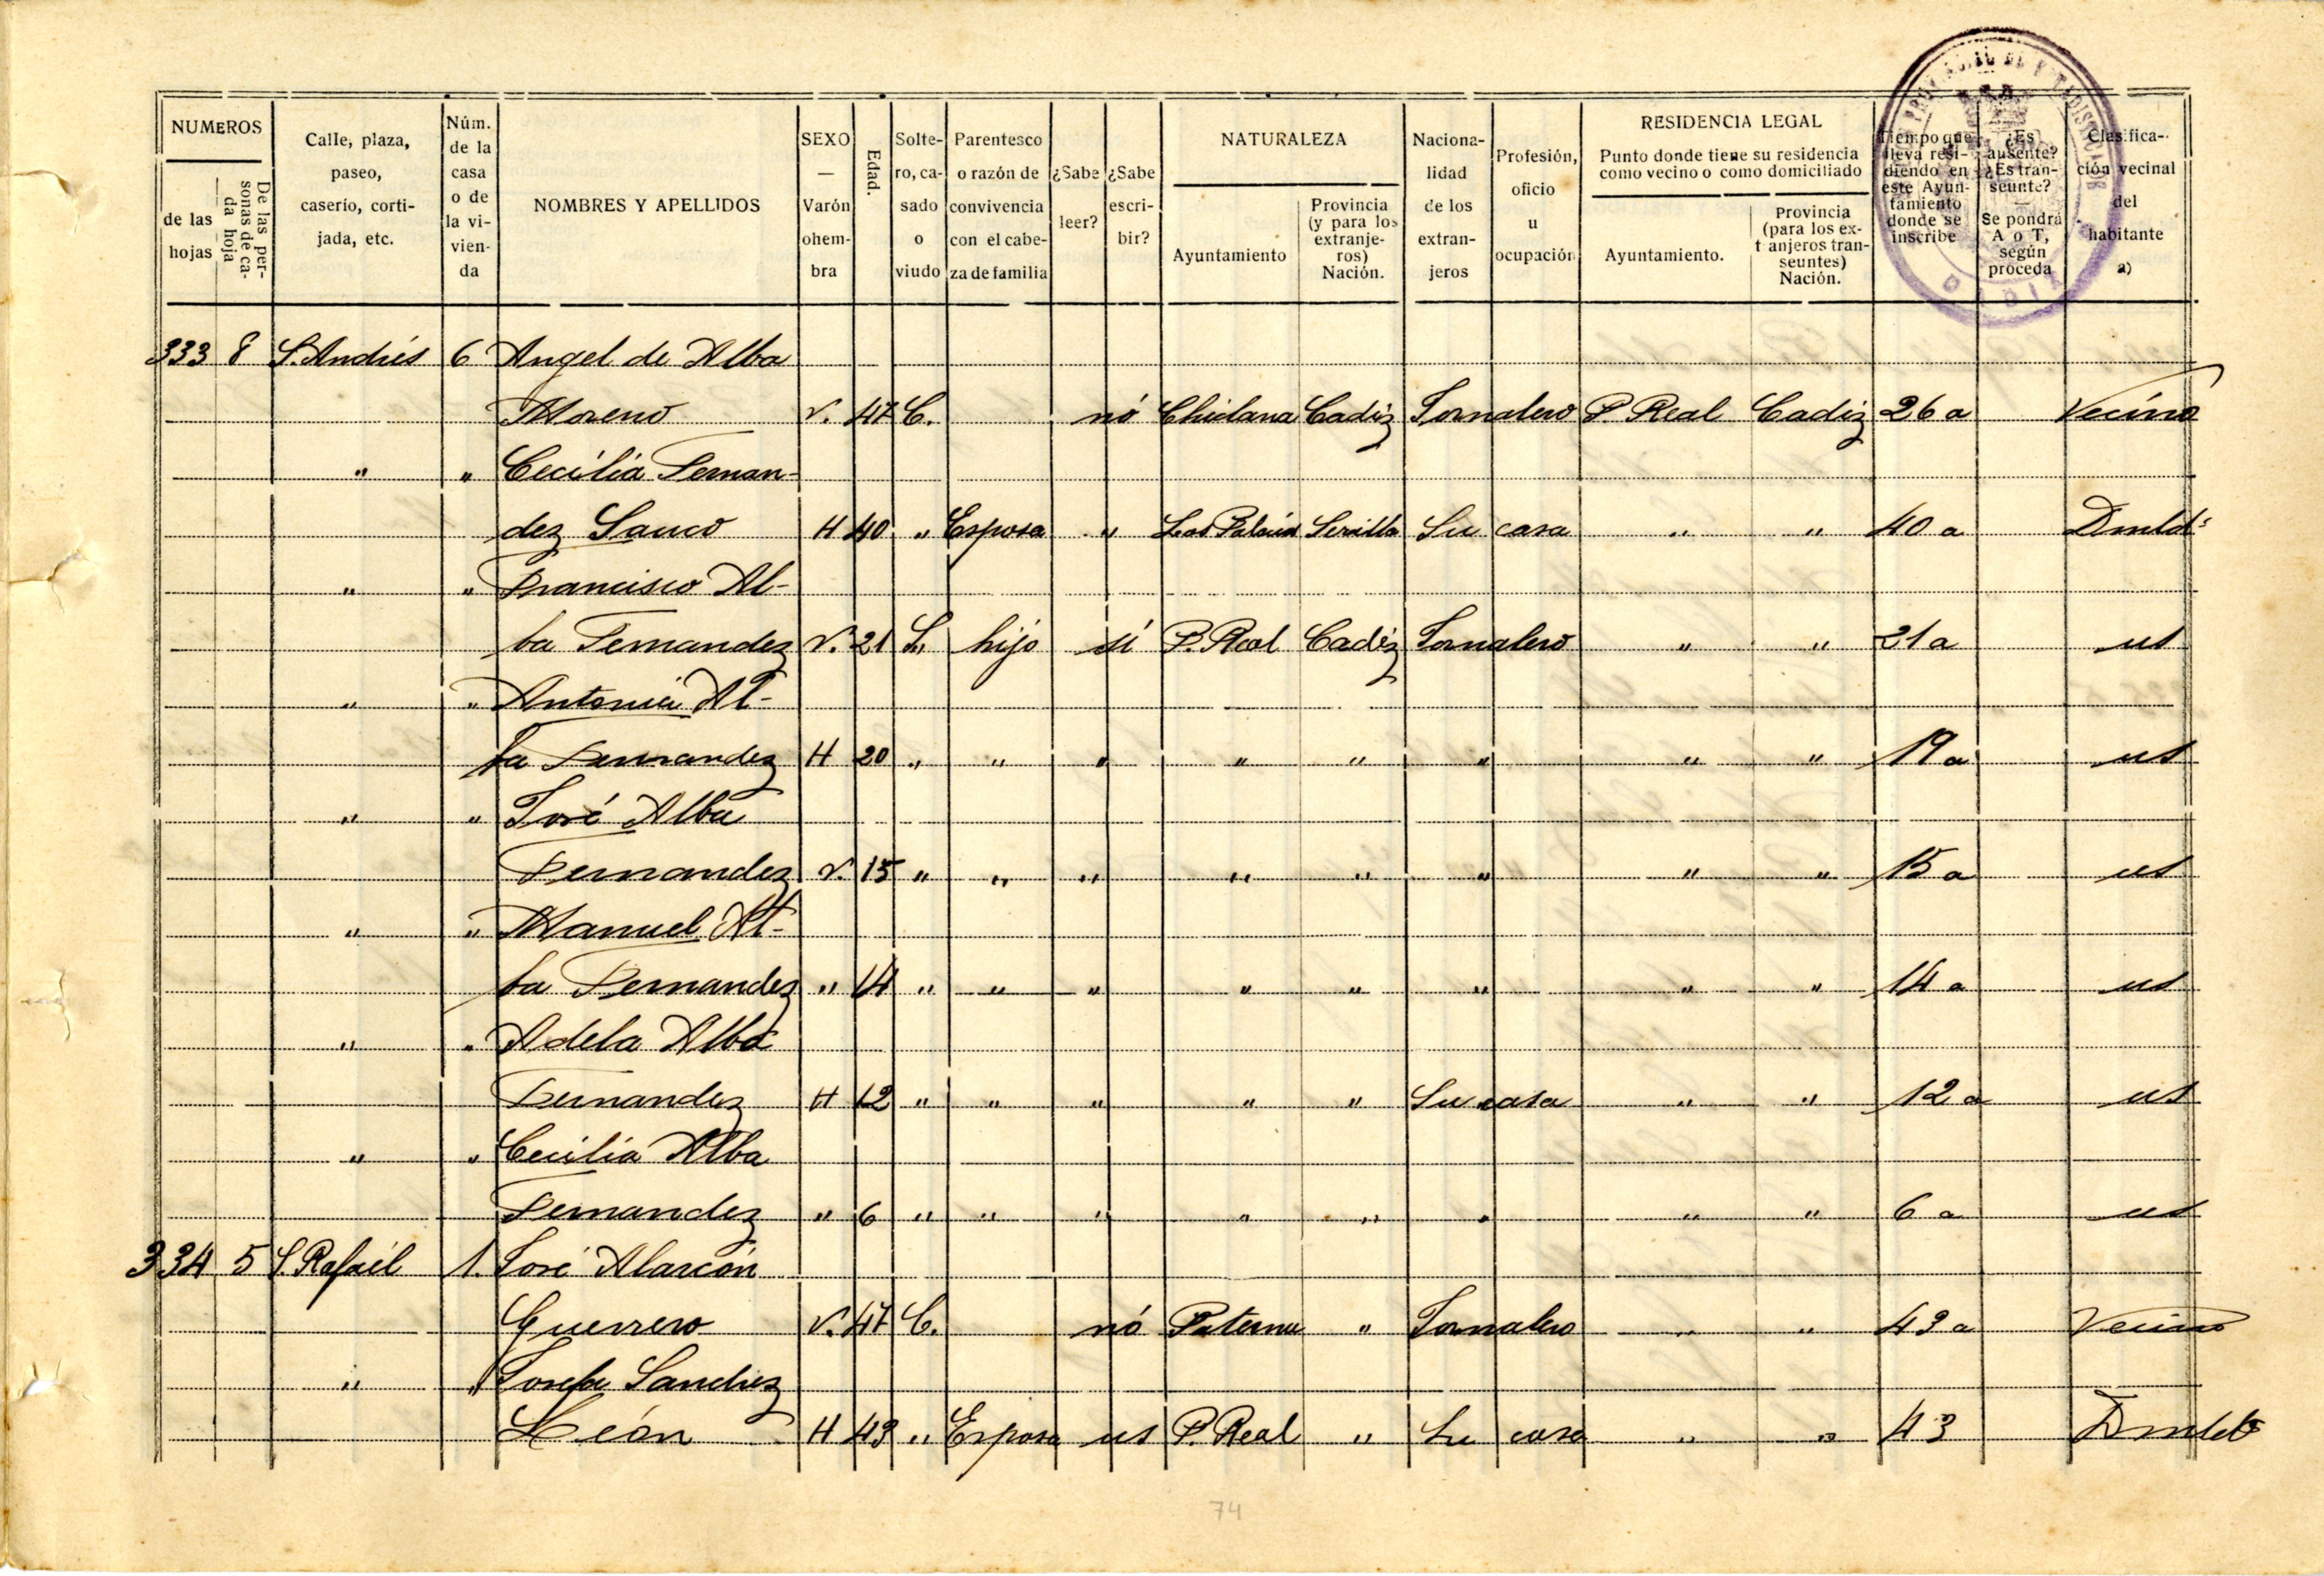 NUMEROS
de las hojas
De las personas de cada hoja
Calle, plaza, paseo, caserío, cortijada, etc.
Núm. de la casa o de la vivienda
NOMBRES Y APELLIDOS
SEXO — Varón ohembra
Edad.
Soltero, casado o viudo
Parentesco o razón de convivencia con el cabeza de familia
¿Sabe leer?
¿Sabe escribir?
NATURALEZA
Ayuntamiento
Provincia (y para los extranjeros) Nación.
Nacionalidad de los extranjeros
Profesión, oficio u ocupación
RESIDENCIA LEGAL
Punto donde tiene su residencia como vecino o como domiciliado
Ayuntamiento.
Provincia (para los ext anjeros transeuntes) Nación.
Tiempo que lleva residiendo en este Ayuntamiento donde se inscribe
¿Es ausente? ¿Es transeunte? — Se pondrá A o T, según proceda
Clasificación vecinal del habitante a)
333 8 S. Andrés 6 Angel de Alba
Moreno V. 47 C. nó Chiclana Cadiz Jornalero P. Real Cadiz 26 a Vecino
" " Cecilia Fernan-
dez Sauco H 40 " Esposa " Los Palacios Sevilla Su casa " " 40 a Dmld
" " Francisco Al-
ba Fernandez V. 21 S. hijo sí P. Real Cadiz Jornalero " " 21 a us
" " Antonia Al-
ba Fernandez H 20 " " " " " " " " 19 a us
" " José Alba
Fernandez V. 15 " " " " " " " " 15 a us
" " Manuel Al-
ba Fernandez " 14 " " " " " " " " 14 a us
" " Adela Alba
Fernandez H 12 " " " " " Su casa " " 12 a us
" " Cecilia Alba
Fernandez " 6 " " " " " " " " 6 a us
334 5 S. Rafaél 1. José Alarcón
Guerrero V. 47 C. nó Paterna " Jornalero " " 43 a Vecino
" " Josefa Sanchez
León H 43 " Esposa us P. Real " Su casa " " 43 Dmldo
74